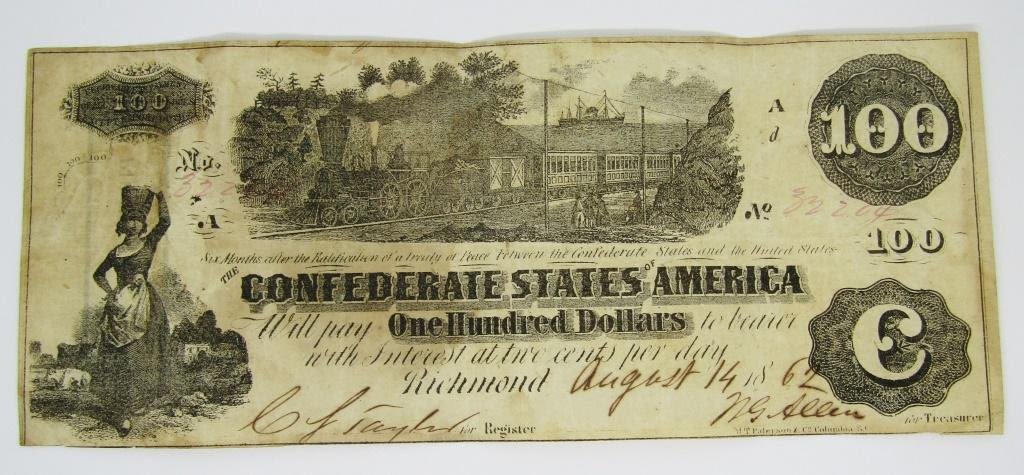 100
100 100 100
No.
A
A
d
100
No 33204
100
Six Months after the Ratification of a treaty of Peace between the Confederate States and the United States
THE CONFEDERATE STATES OF AMERICA
Will pay One Hundred Dollars to bearer
with Interest at two cents per day
Richmond August 14 1862
C
C J Taylor for Register
W G Allen for Treasurer
J.T. Paterson & Co Columbia S.C